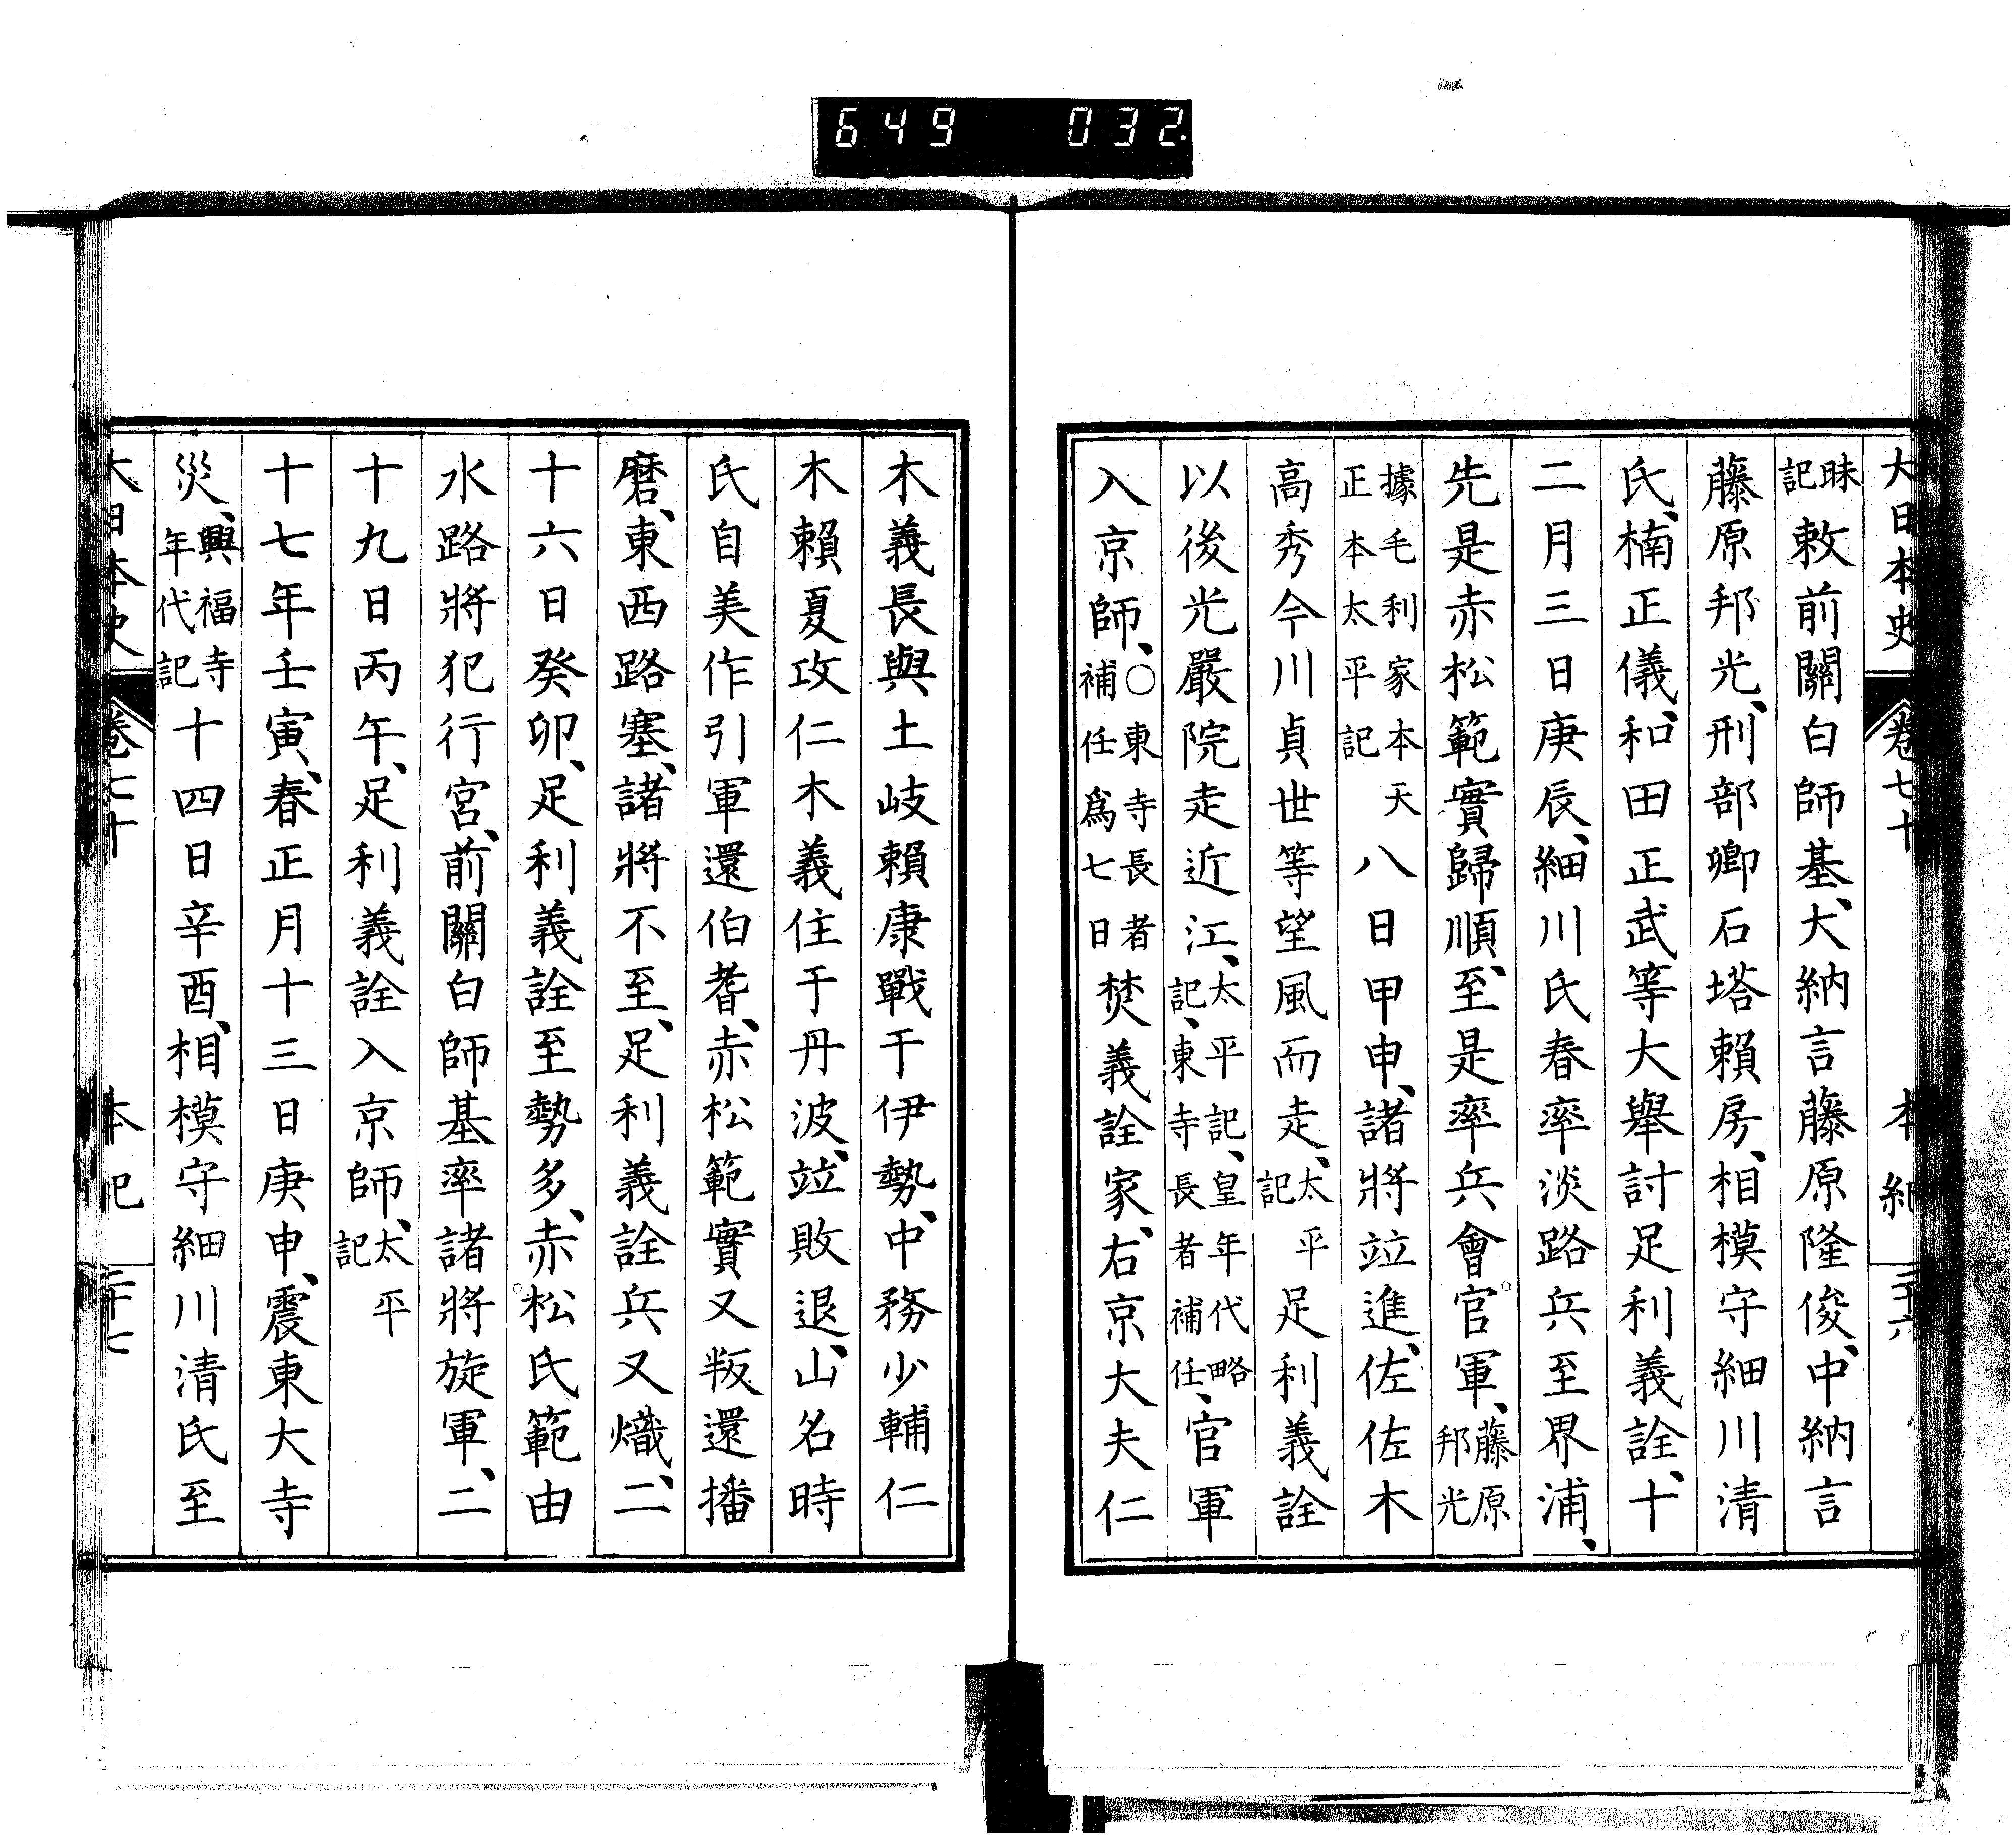 649 032.
大日本史 卷七十 本紀 二十六
昧記敕前關白師基、大納言藤原隆俊、中納言
藤原邦光、刑部卿石塔賴房、相模守細川清
氏、楠正儀、和田正武等大舉討足利義詮、十
二月三日庚辰、細川氏春率淡路兵至界浦、
先是赤松範實歸順、至是率兵會官軍、藤原邦光
據毛利家本天正本太平記八日甲申、諸將竝進、佐佐木
高秀今川貞世等望風而走、太平記足利義詮
以後光嚴院走近江、太平記、皇年代略記、東寺長者補任、官軍
入京師、○東寺長者補任爲七日焚義詮家、右京大夫仁
木義長與土岐賴康戰于伊勢、中務少輔仁
木賴夏攻仁木義住于丹波、竝敗退、山名時
氏自美作引軍還伯耆、赤松範實又叛還播
磨、東西路塞、諸將不至、足利義詮兵又熾、二
十六日癸卯、足利義詮至勢多、赤松氏範由
水路將犯行宮、前關白師基率諸將旋軍、二
十九日丙午、足利義詮入京師、太平記
十七年壬寅、春正月十三日庚申、震東大寺
災、興福寺年代記十四日辛酉、相模守細川清氏至
大日本史 卷七十 本紀 二十七